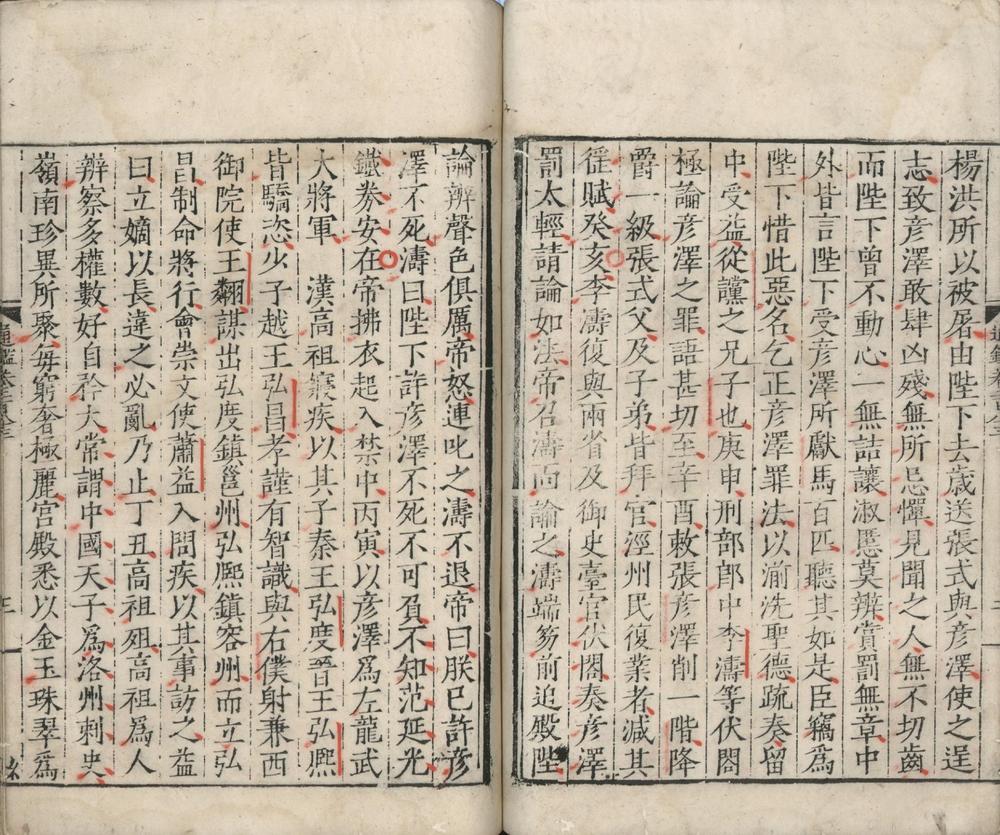 楊洪所以被屠由陛下去歲送張式與彥澤使之逞
志致彥澤敢肆凶殘無所忌憚見聞之人無不切齒
而陛下曾不動心一無詰讓淑慝莫辨賞罰無章中
外皆言陛下受彥澤所獻馬百匹聽其如是臣竊為
陛下惜此惡名乞正彥澤罪法以湔洗聖德疏奏留
中受益從讜之兄子也庚申刑部郎中李濤等伏閤
極論彥澤之罪語甚切至辛酉敕張彥澤削一階降
爵一級張式父及子弟皆拜官涇州民復業者減其
徭賦癸亥李濤復與兩省及御史臺官伏閤奏彥澤
罰太輕請論如法帝召濤面論之濤端笏前迫殿陛
論辨聲色俱厲帝怒連叱之濤不退帝曰朕已許彥
澤不死濤曰陛下許彥澤不死不可負不知范延光
鐵券安在帝拂衣起入禁中丙寅以彥澤為左龍武
大將軍　漢高祖寢疾以其子秦王弘度晉王弘熈
皆驕恣少子越王弘昌孝謹有智識與右僕射兼西
御院使王翷謀出弘度鎮邕州弘熈鎮容州而立弘
昌制命將行會崇文使蕭益入問疾以其事訪之益
曰立嫡以長違之必亂乃止丁丑高祖殂高祖為人
辨察多權數好自矜大常謂中國天子為洛州刺史
嶺南珍異所聚每窮奢極麗宮殿悉以金玉珠翠為